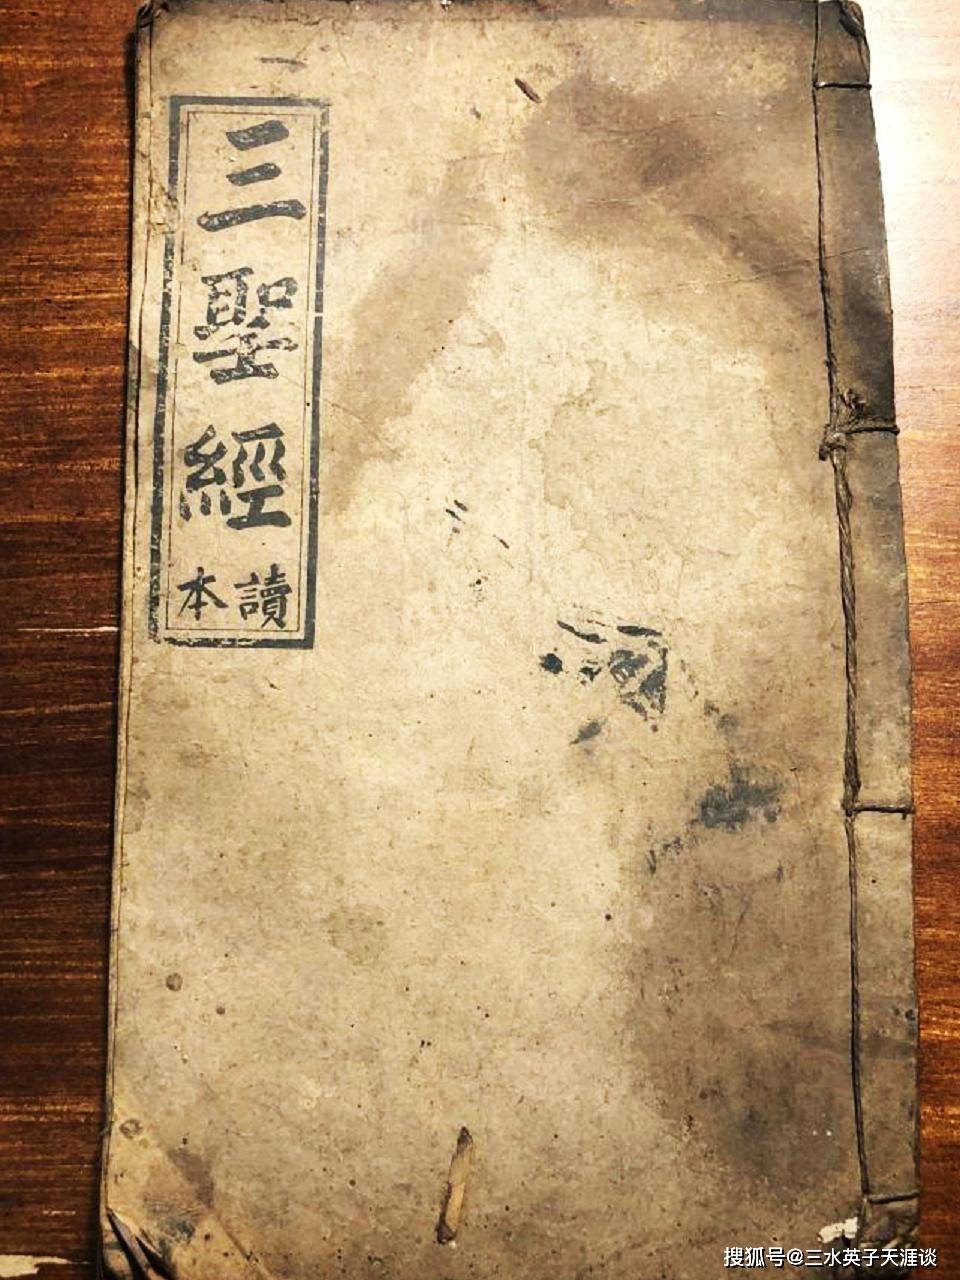 三聖經
讀本
搜狐号@三水英子天涯谈